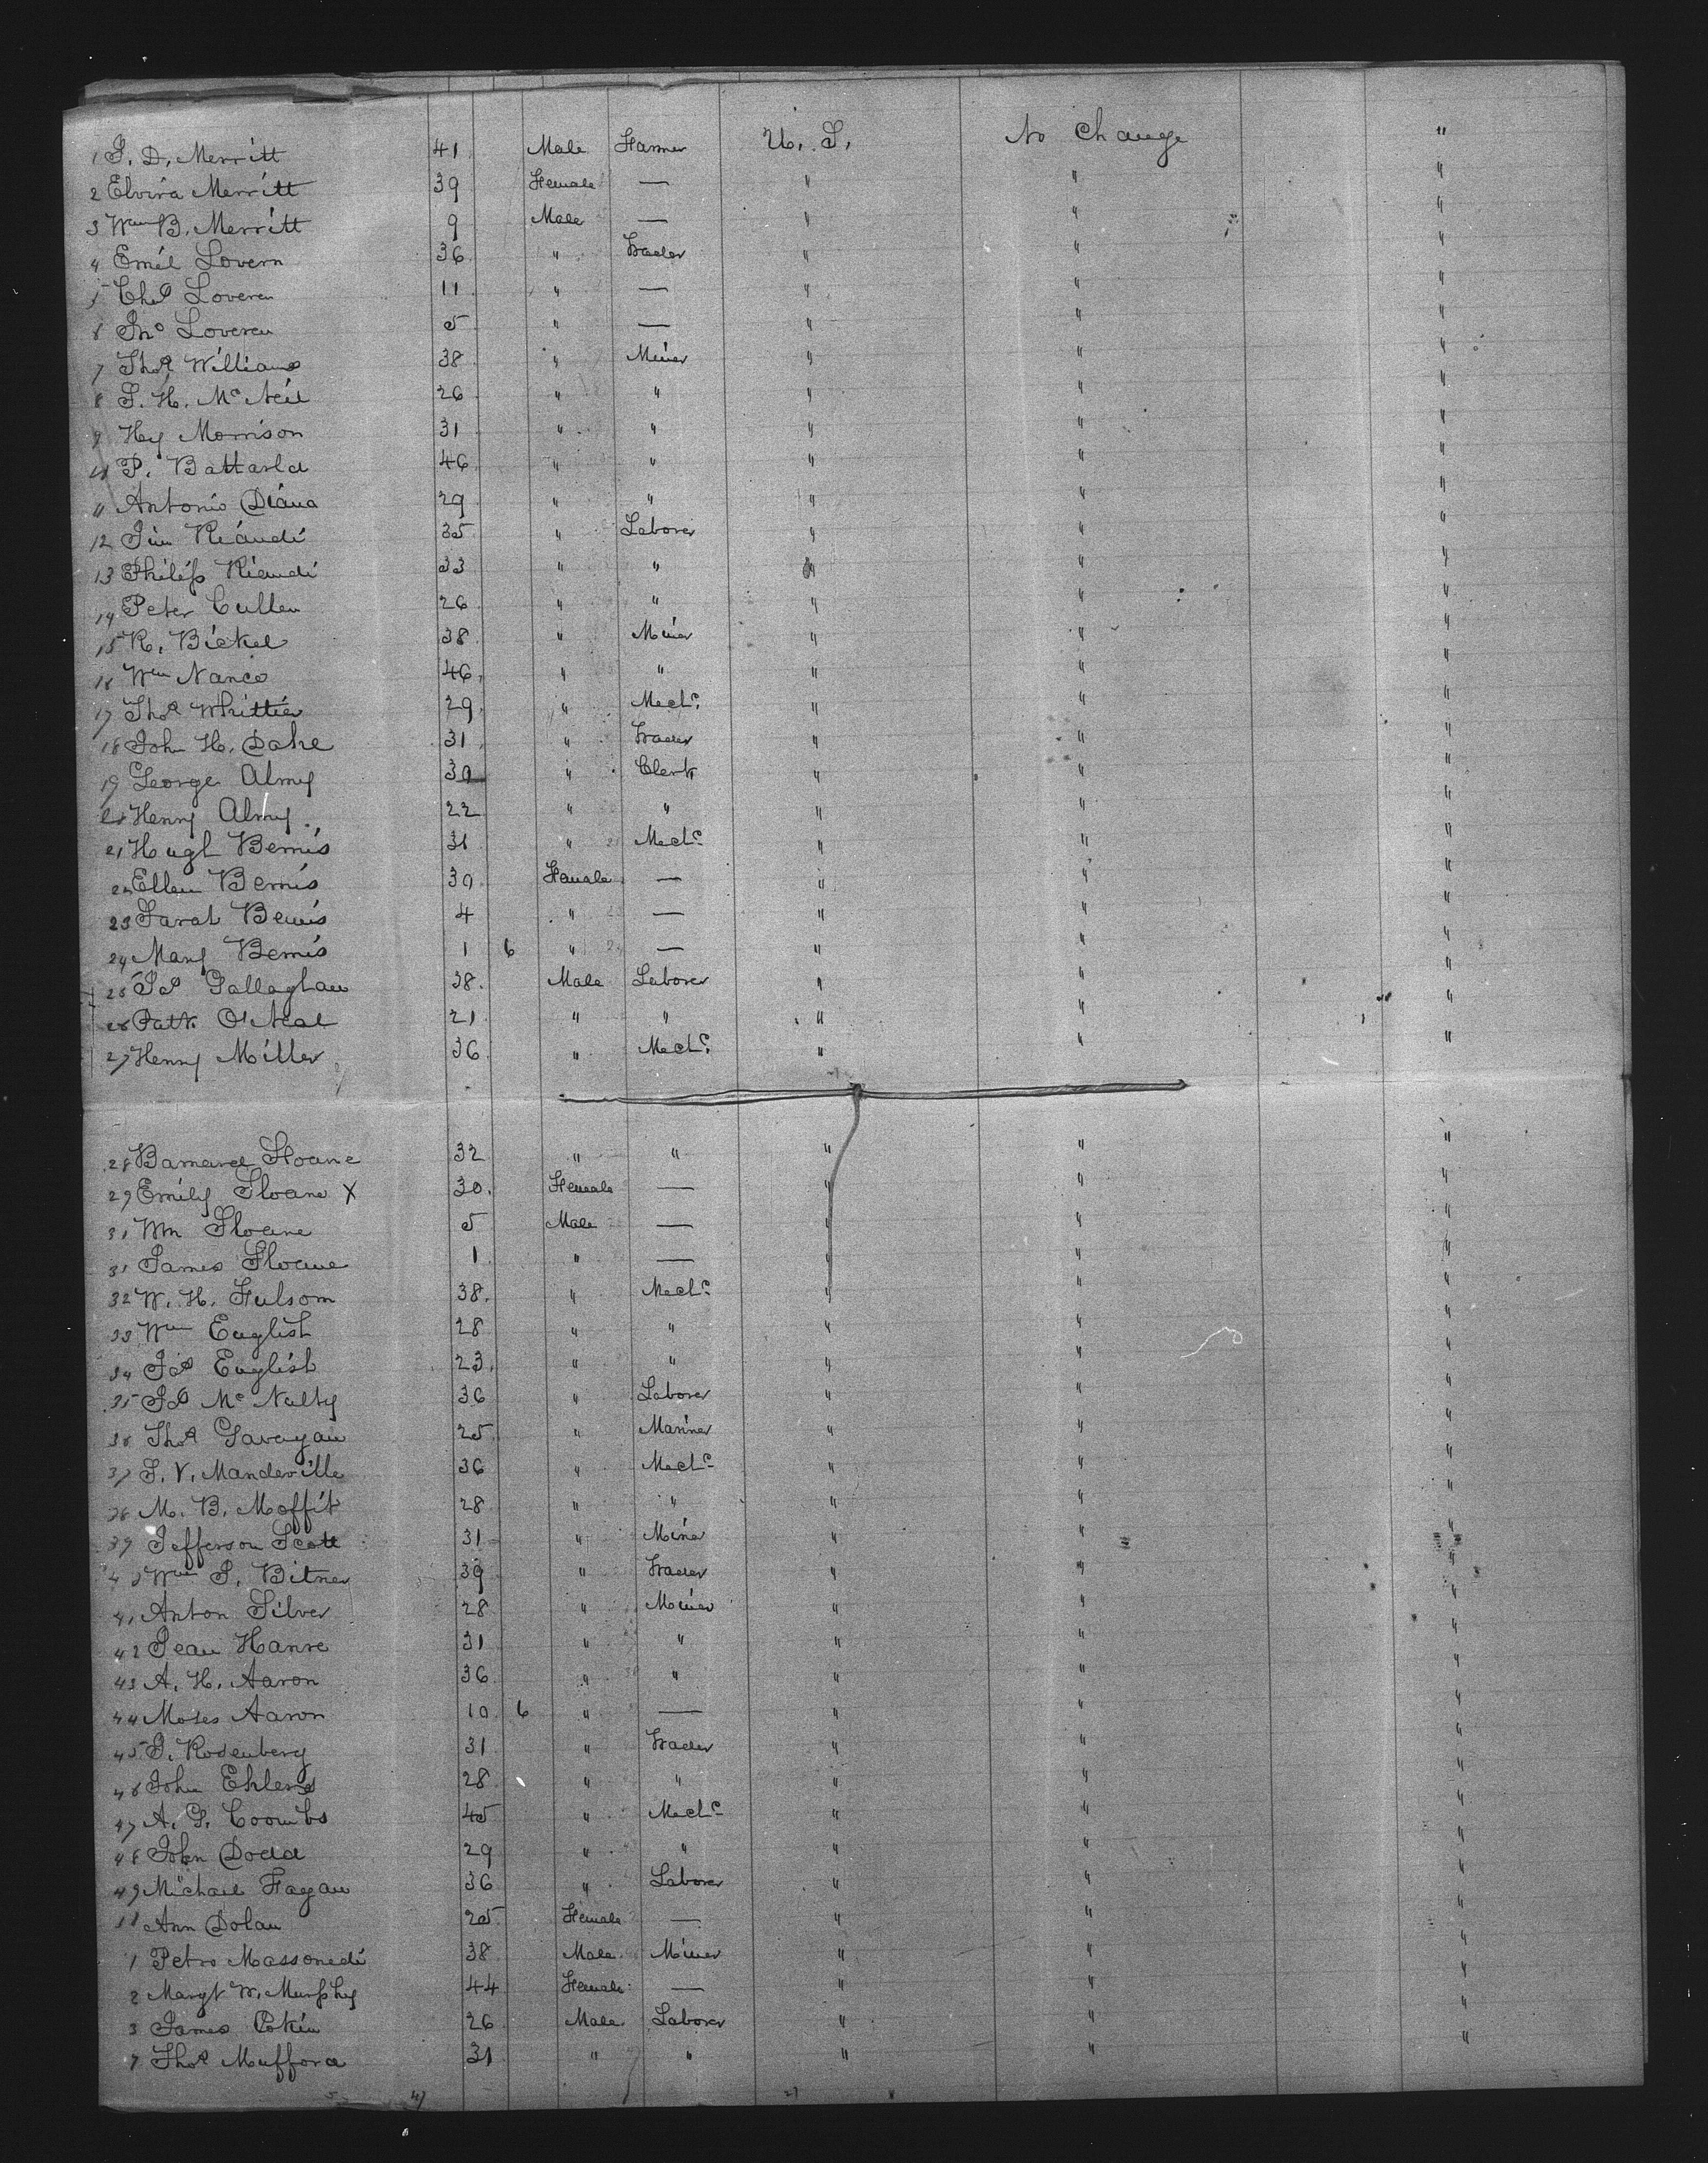 1 S. D. Merritt 41 Male Farmer U. S. No Change "
2 Elvira Merritt 39 Female — " " "
3 Wm B. Merritt 9 Male — " " "
4 Emil Lovern 36 " Trader " " "
5 Chas Loveren 11 " — " " "
6 Jno Loveren 5 " — " " "
7 Thos Williams 38 " Miner " " "
8 S. H. McNeil 26 " " " " "
9 Hy Morrison 31 " " " " "
P. Battarla 46 " " " " "
11 Antonio Diana 29 " " " " "
12 Jim Riandi 35 " Laborer " " "
13 Philip Riandi 33 " " " " "
14 Peter Cullen 26 " " " " "
15 R. Bickel 38 " Miner " " "
16 Wm Nance 46 " " " " "
17 Thos Whittier 29 " Mechc " " "
18 John H. Dake 31 " Trader " " "
19 George Almy 30 " Clerk " " "
20 Henry Almy 22 " " " " "
21 Hugh Bemis 31 " Mechc " " "
22 Ellen Bemis 30 Female — " " "
23 Sarah Bemis 4 " — " " "
24 Mary Bemis 1 6 " — " " "
25 Jas Gallaghan 38 Male Laborer " " "
26 Patk O'Neal 21 " " " " "
27 Henry Miller 36 " Mechc " " "
28 Barnard Sloane 32 " " " " "
29 Emily Sloane X 30 Female — " " "
Wm Sloane 5 Male — " " "
31 James Sloane 1 " — " " "
32 W. H. Fulsom 38 " Mechc " " "
33 Wm English 28 " " " " "
34 Jas English 23 " " " " "
35 Jas McNulty 36 " Laborer " " "
36 Thos Gavagan 25 " Mariner " " "
37 S. V. Mandeville 36 " Mechc " " "
38 M. B. Moffit 28 " " " " "
39 Jefferson Scott 31 " Miner " " "
40 Wm S. Bitner 39 " Trader " " "
41 Anton Silver 28 " Miner " " "
42 Jean Hanre 31 " " " " "
43 A. H. Aaron 36 " " " " "
44 Moses Aaron 10 6 " — " " "
45 S. Rosenberg 31 " Trader " " "
46 John Ehlers 28 " " " " "
47 A. G. Coombs 45 " Mechc " " "
48 John Dodd 29 " " " " "
49 Michael Fagan 36 " Laborer " " "
Ann Dolan 25 Female — " " "
1 Petro Massonedi 38 Male Miner " " "
2 Margt W. Murphy 44 Female — " " "
3 James Eakin 26 Male Laborer " " "
Thos Mufford 31 " " " " "